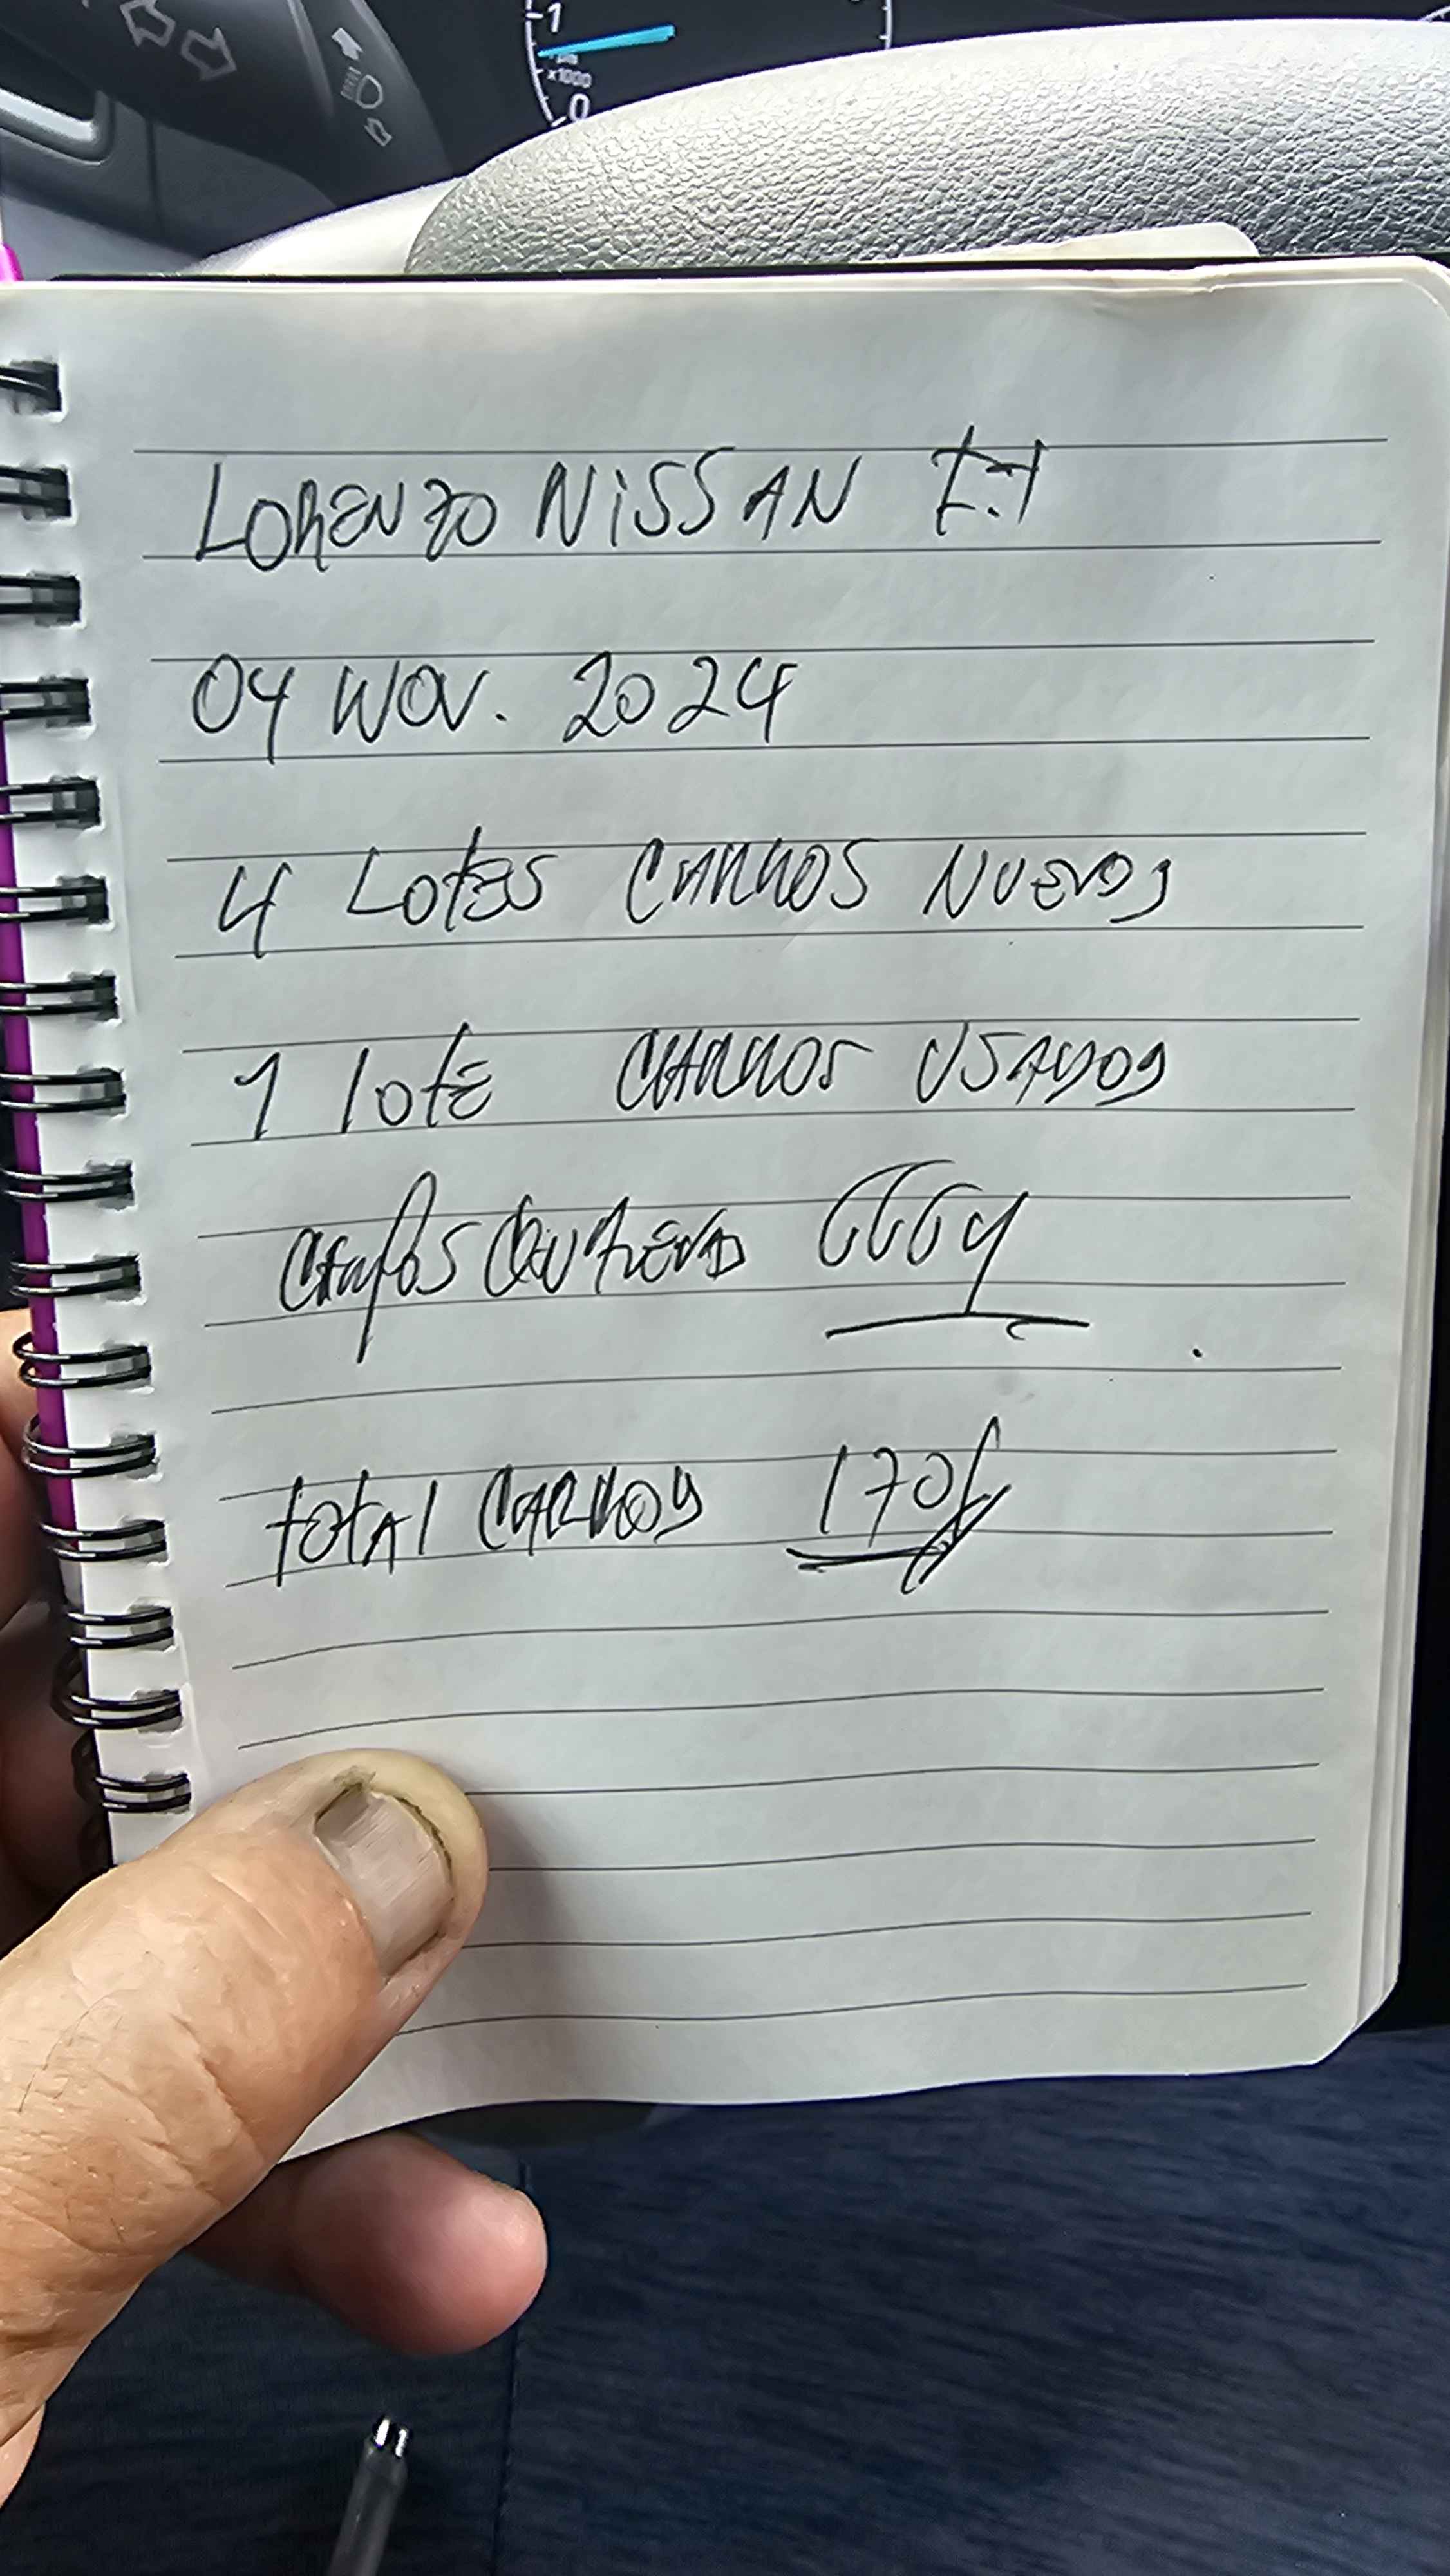 1
x1000
0
LORENZO NISSAN
04 NOV. 2024
4 Lotes CARROS NUEVOS
1 lote CARROS USADOS
CAMPOS
total CARROS 170